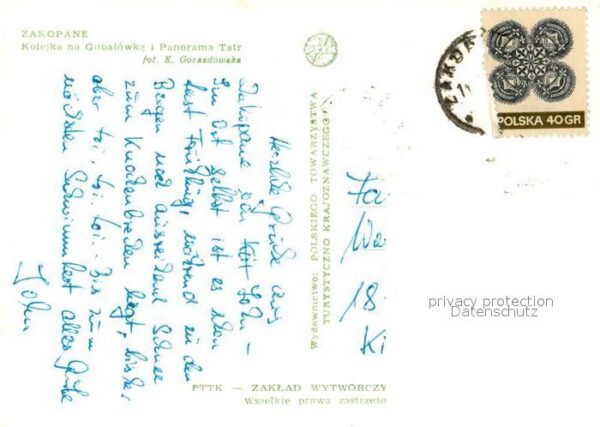 ZAKOPANE
Kolejka na Gubałówkę i Panorama Tatr
fot. K. Gorazdowska
Herzliche Grüße aus
Zakopane
Im Ort selbst ist es schon
fast Frühling, während in den
Bergen noch ausreichend Schnee
zum Knochenbrechen liegt, bisher
aber toi, toi, toi. Bis zum
nächsten alles Gute
John
Wydawnictwo: POLSKIEGO TOWARZYSTWA
TURYSTYCZNO KRAJOZNAWCZEGO
PTTK — ZAKŁAD WYTWÓRCZY
Wszelkie prawa zastrzeżo
POLSKA 40 GR
Fa
18
Ki
privacy protection
Datenschutz